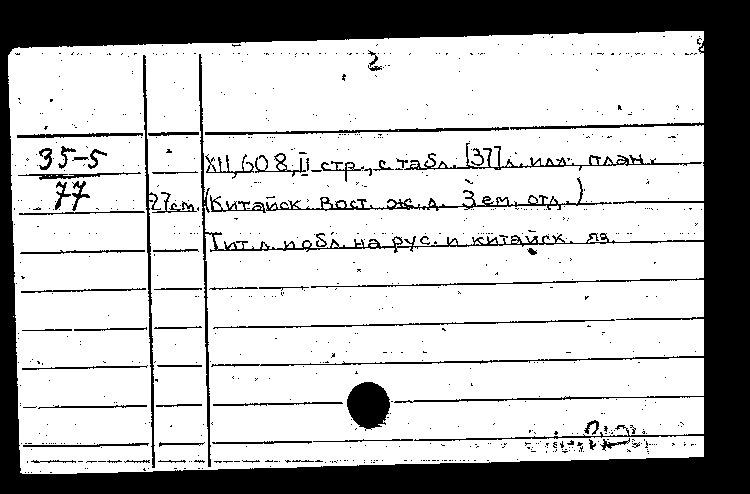 2
35-5
77
XII, 608, II стр., с табл. [37] л. илл., план.
27 см. (Китайск. Вост. ж.д. Зем. отд.)
Тит. л. и обл. на рус. и китайск. яз.